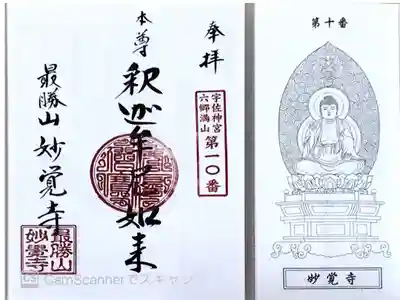 奉拝
宇佐神宮
六郷満山
第一〇番
本尊
釈迦牟尼如来
最勝山妙覚寺
最勝山
妙覺寺
CamScannerでスキャン
第十番
妙覚寺